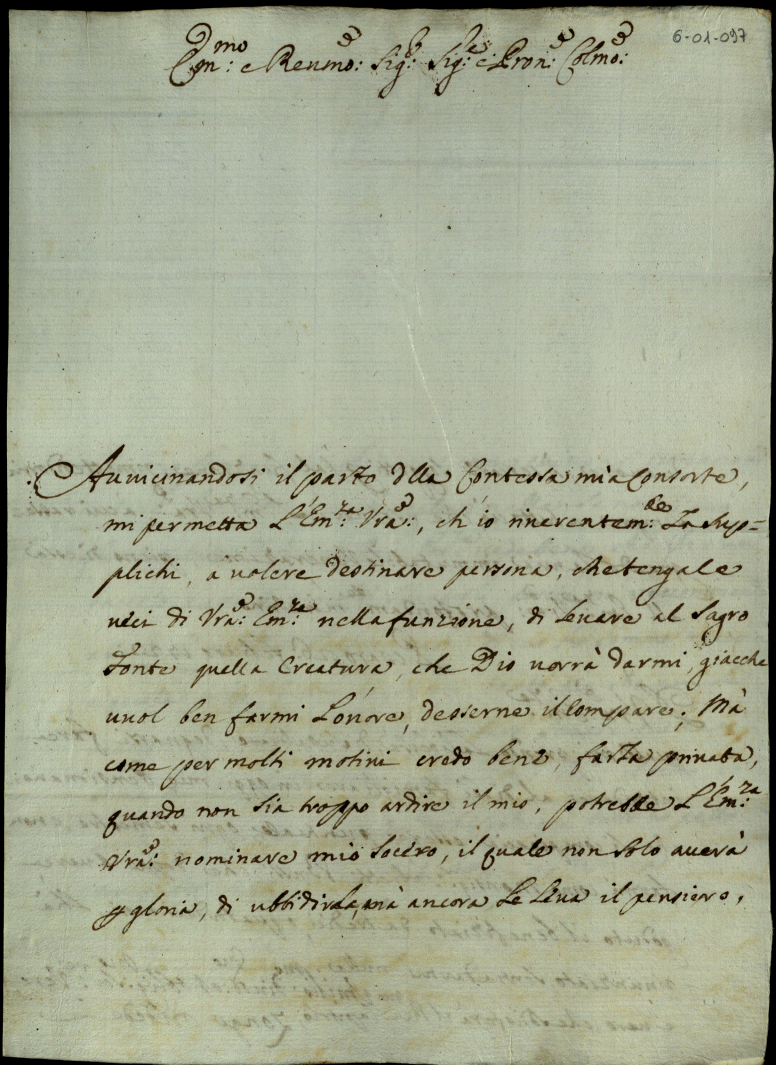 6-01-097
Em:mo e Reumo: Sig:r Sig:r e Pron:e Colmo:
Auuicinandosi il parto dlla Contessa mia Consorte,
mi permetta L'Em:za Vra:, ch'io riuerentem:te La sup=
plichi, à uolere destinare persona, che tenga le
ueci di Vra: Em:za nella funzione, di leuare al Sagro
Fonte quella Creatura, che Dio uorrà darmi, giacche
uuol ben farmi L'onore, d'esserne il Compare; Mà
come per molti motiui credo bene, farla priuata,
quando non sia troppo ardire il mio, potrebbe L'Em:za
Vra: nominare mio Socero, il quale non solo auerà
p gloria, di ubbidirla, mà ancora Le Leua il pensiero,